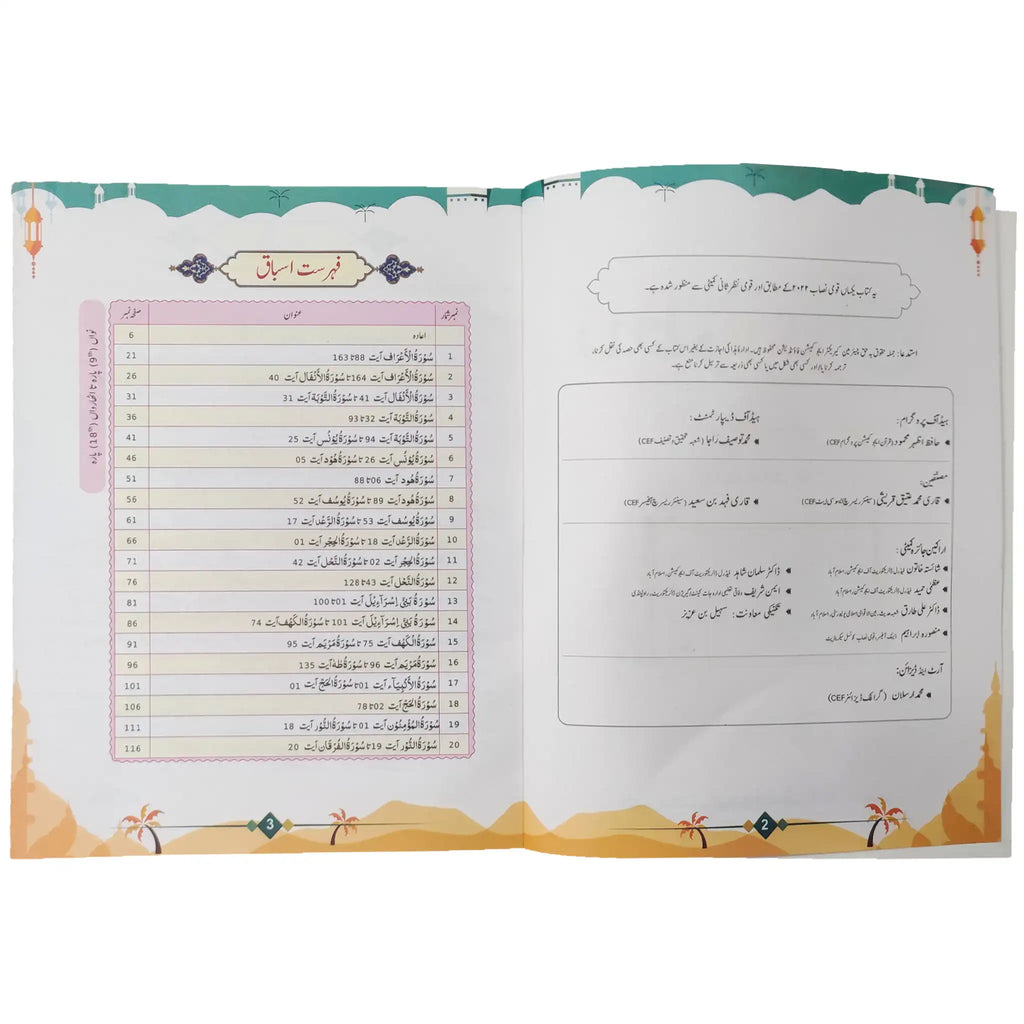 یہ کتاب یکساں قومی نصاب ۲۰۲۲ کے مطابق اور قومی نظر ثانی کمیٹی سے منظور شدہ ہے۔
استدعا: جملہ حقوق بہ حق چیئرمین کیریکٹر ایجوکیشن فاؤنڈیشن محفوظ ہیں۔ ادارہ ہذا کی اجازت کے بغیر اس کتاب کے کسی بھی حصہ کی نقل کرنا،
ترجمہ کرنا یا اور کسی بھی شکل میں یا کسی بھی ذریعہ سے ترسیل کرنا منع ہے۔
ہیڈ آف پروگرام: ہیڈ آف ڈیپارٹمنٹ:
حافظ اظہر محمود (قرآن ایجوکیشن پروگرام CEF) محمد توصیف راجا (شعبہ تحقیق و تصنیف CEF)
مصنّفین:
قاری محمد عتیق قریشی (سینئر ریسرچ ایسوسی ایٹ CEF) قاری فہد بن سعید (سینئر ریسرچ آفیسر CEF)
اراکین جائزہ کمیٹی:
شائستہ خاتون فیڈرل ڈائریکٹوریٹ آف ایجوکیشن، اسلام آباد ڈاکٹر سلمان شاہد فیڈرل ڈائریکٹوریٹ آف ایجوکیشن، اسلام آباد
عظمیٰ حمید فیڈرل ڈائریکٹوریٹ آف ایجوکیشن، اسلام آباد ایمن شریف وفاقی تعلیمی ادارہ جات کینٹ/گیریژن ڈائریکٹوریٹ، راولپنڈی
ڈاکٹر علی طارق شعبہ حدیث، بین الاقوامی اسلامی یونیورسٹی، اسلام آباد تکنیکی معاونت: سہیل بن عزیز
منصورہ ابراہیم قومی نصاب کونسل سیکریٹریٹ
آرٹ اینڈ ڈیزائن:
محمد ارسلان (گرافک ڈیزائنر CEF)
2
فہرست اسباق
نمبر شمار عنوان صفحہ نمبر
اعادہ 6
1 سُوْرَةُ الْأَعْرَاف آیت 88 تا 163 21
2 سُوْرَةُ الْأَعْرَاف آیت 164 تا سُوْرَةُ الْأَنْفَال آیت 40 26
3 سُوْرَةُ الْأَنْفَال آیت 41 تا سُوْرَةُ التَّوْبَة آیت 31 31
4 سُوْرَةُ التَّوْبَة آیت 32 تا 93 36
5 سُوْرَةُ التَّوْبَة آیت 94 تا سُوْرَةُ يُوْنُس آیت 25 41
6 سُوْرَةُ يُوْنُس آیت 26 تا سُوْرَةُ هُوْد آیت 05 46
7 سُوْرَةُ هُوْد آیت 06 تا 88 51
8 سُوْرَةُ هُوْد آیت 89 تا سُوْرَةُ يُوسُف آیت 52 56
9 سُوْرَةُ يُوسُف آیت 53 تا سُوْرَةُ الرَّعْد آیت 17 61
10 سُوْرَةُ الرَّعْد آیت 18 تا سُوْرَةُ الْحِجْر آیت 01 66
11 سُوْرَةُ الْحِجْر آیت 02 تا سُوْرَةُ النَّحْل آیت 42 71
12 سُوْرَةُ النَّحْل آیت 43 تا 128 76
13 سُوْرَةُ بَنِيْٓ إِسْرَآءِيْل آیت 01 تا 100 81
14 سُوْرَةُ بَنِيْٓ إِسْرَآءِيْل آیت 101 تا سُوْرَةُ الْكَهْف آیت 74 86
15 سُوْرَةُ الْكَهْف آیت 75 تا سُوْرَةُ مَرْيَم آیت 95 91
16 سُوْرَةُ مَرْيَم آیت 96 تا سُوْرَةُ طٰهٰ آیت 135 96
17 سُوْرَةُ الْأَنْبِيَآء آیت 01 تا سُوْرَةُ الْحَجّ آیت 01 101
18 سُوْرَةُ الْحَجّ آیت 02 تا 78 106
19 سُوْرَةُ الْمُؤْمِنُوْن آیت 01 تا سُوْرَةُ النُّوْر آیت 18 111
20 سُوْرَةُ النُّوْر آیت 19 تا سُوْرَةُ الْفُرْقَان آیت 20 116
3